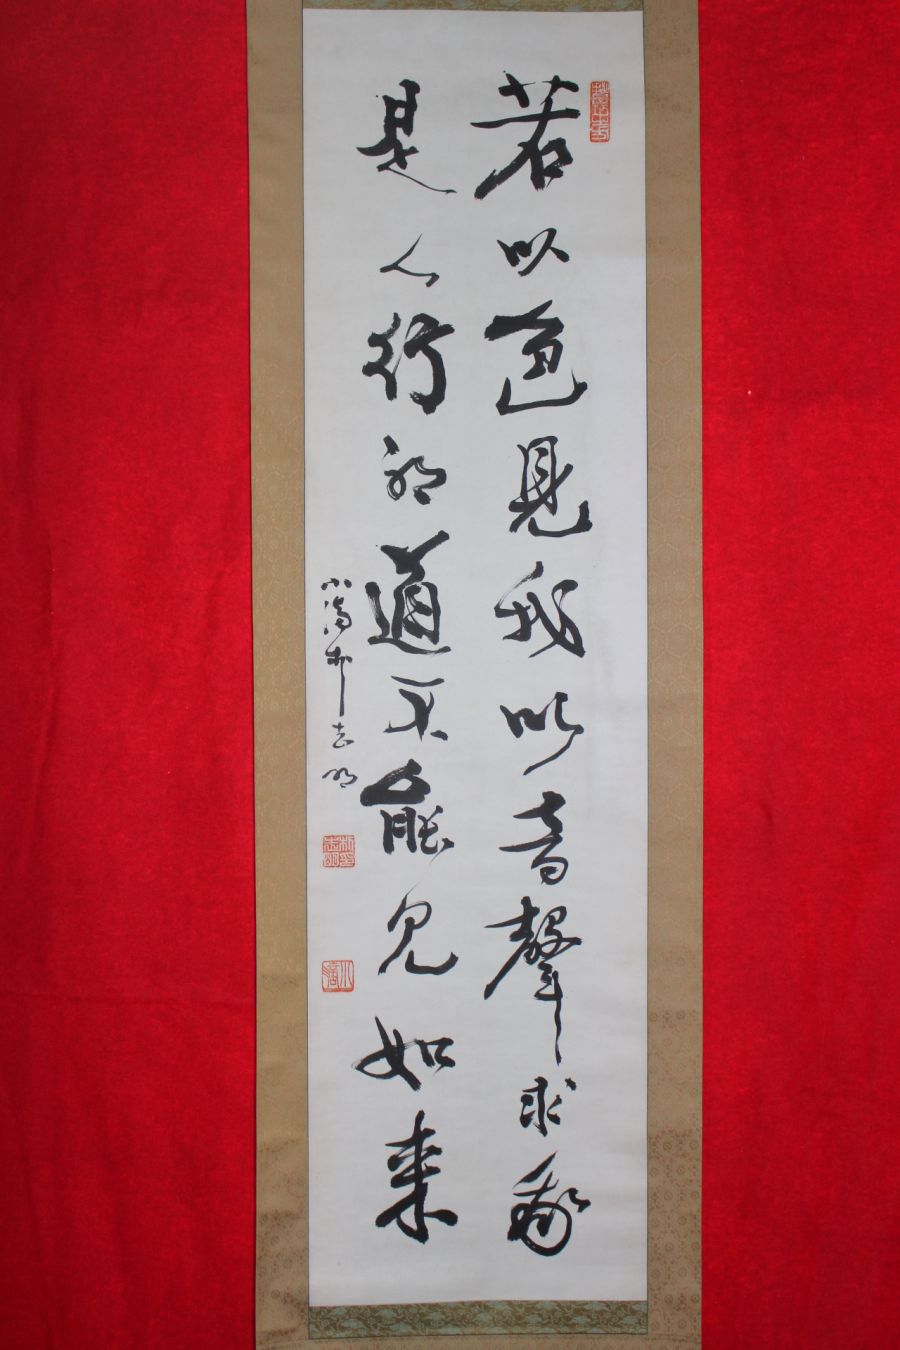 若以色見我以音聲求我
是人行邪道不能見如来
小濤柳志明